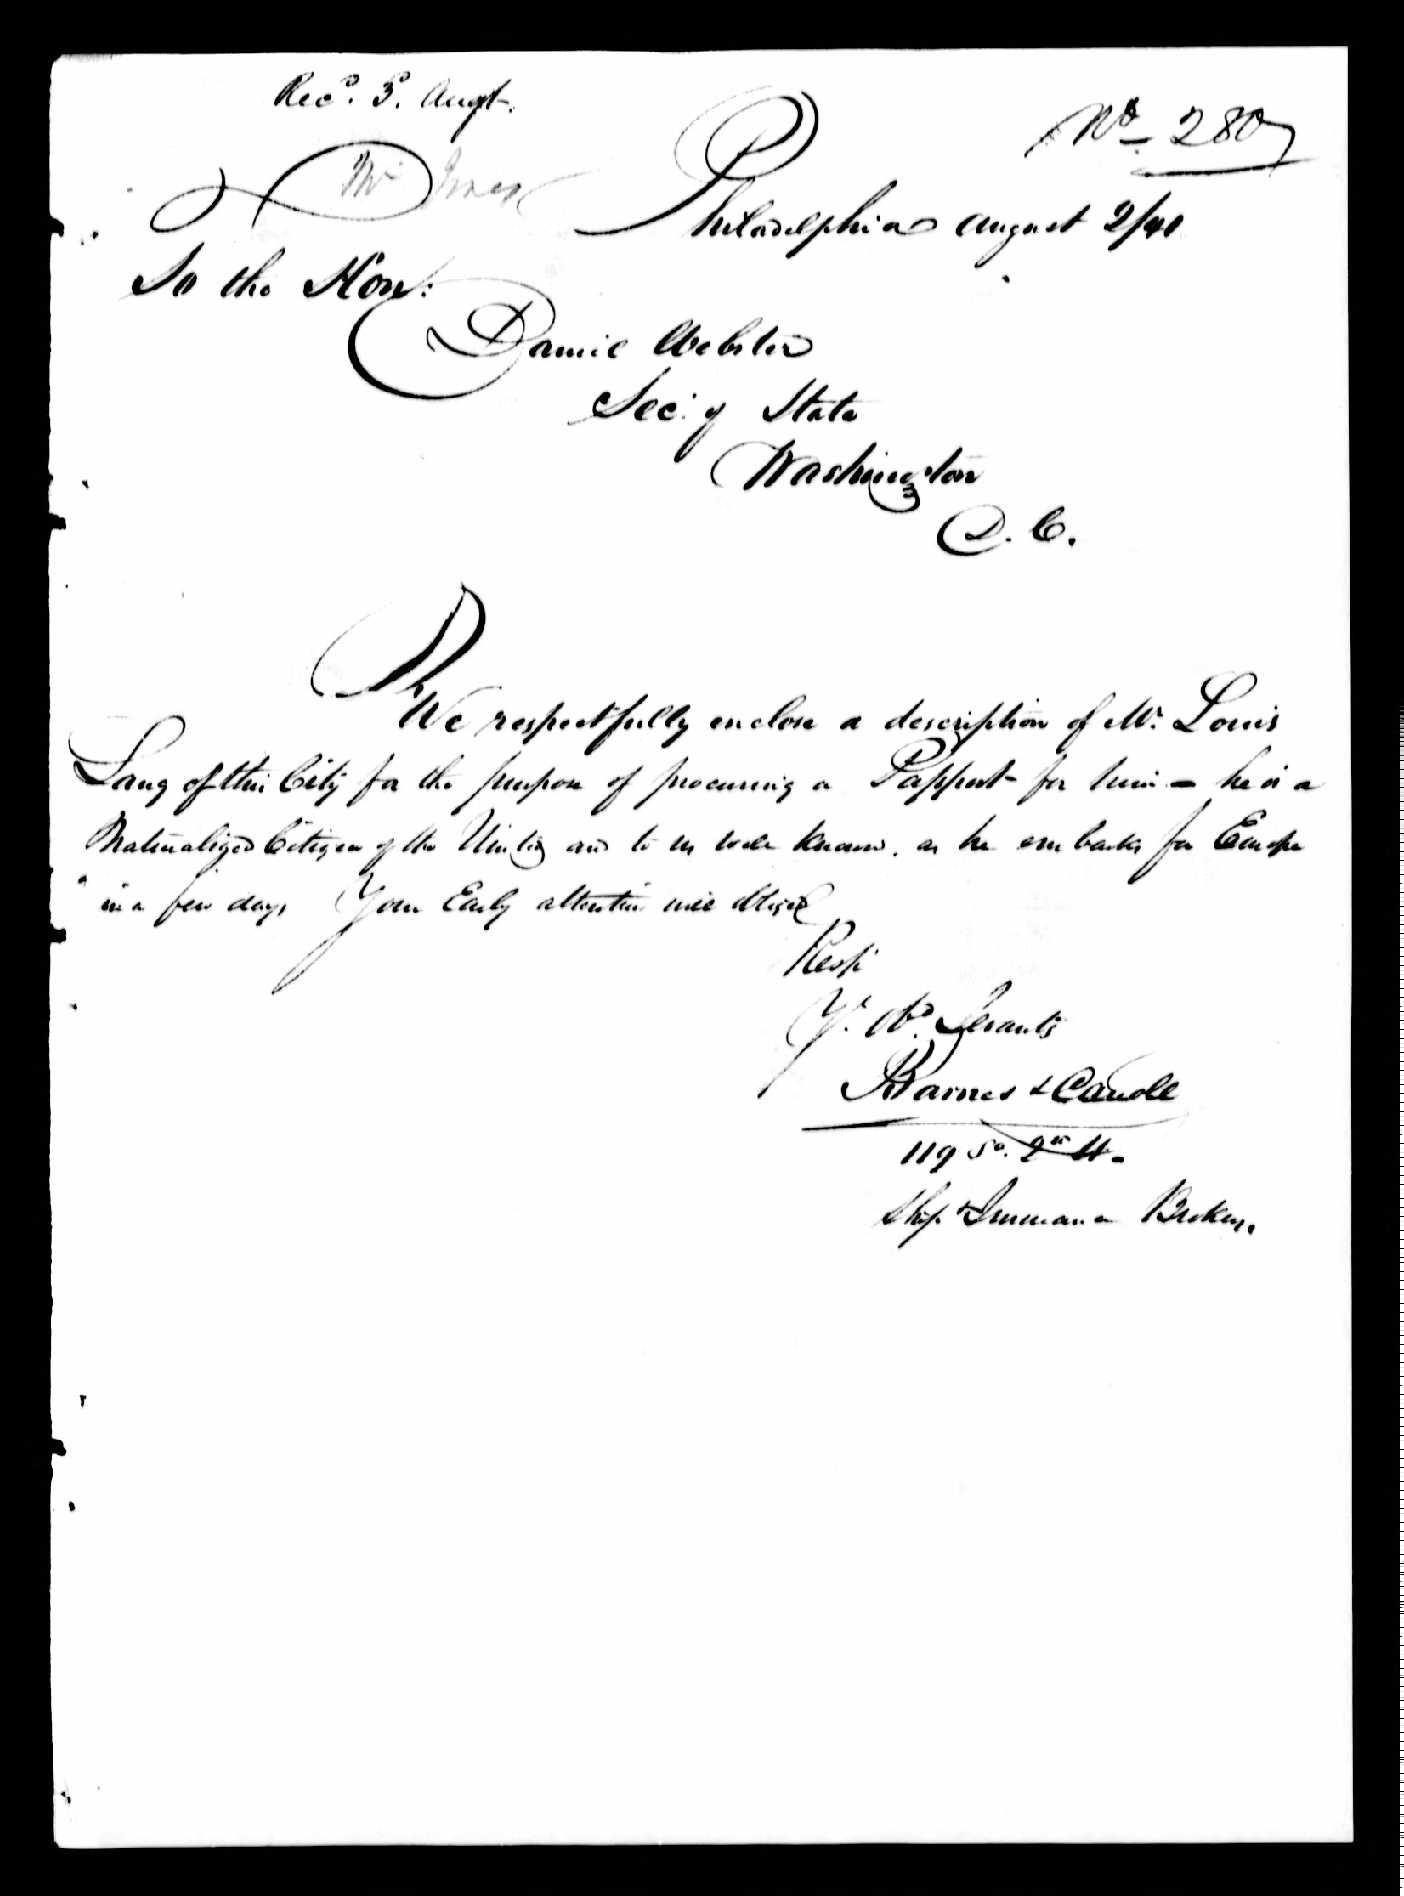 Recd. 3. Augt.
No. 280
Mr
Philadelphia August 2/41
To the Hon:
Daniel Webster
Sec: of State
Washington
D. C.
We respectfully enclose a description of Mr. Louis
Lang of this City for the purpose of procuring a Passport for him – he is a
Naturalized Citizen of the and to us well known. as he embarks for Europe
in a few days Your Early attention will oblige
Resp
Yr. Ob. Servants
Barnes &
119 So. 2nd St.
Ship & Insurance Brokers.